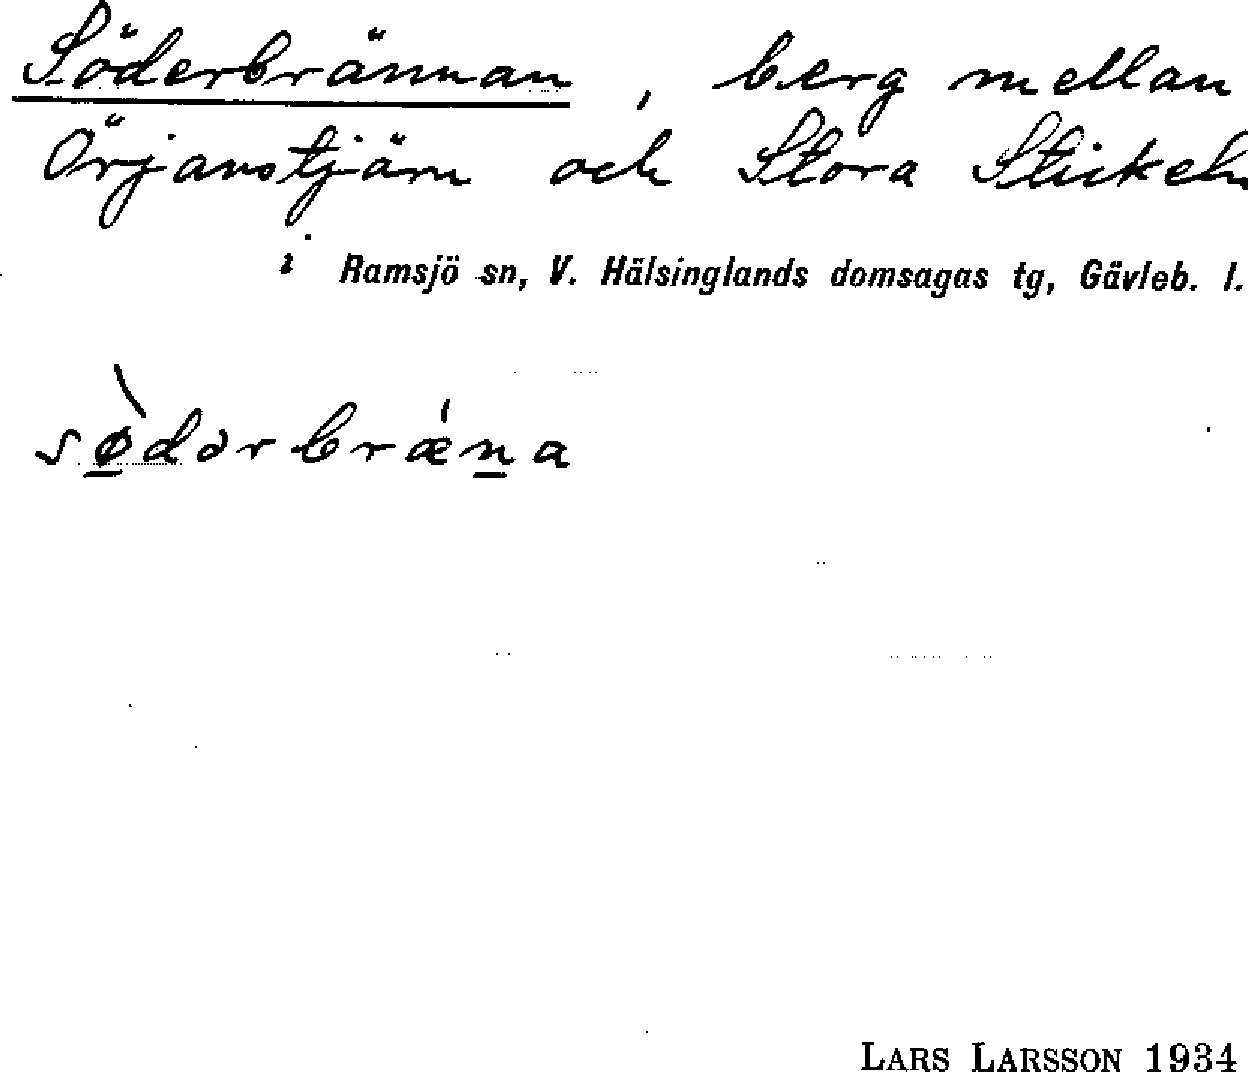 Söderbrännan, berg mellan
Örjanstjärn och Stora
i Ramsjö sn, V. Hälsinglands domsagas tg, Gävleb. l.
sø̀dərbrǽna
LARS LARSSON 1934